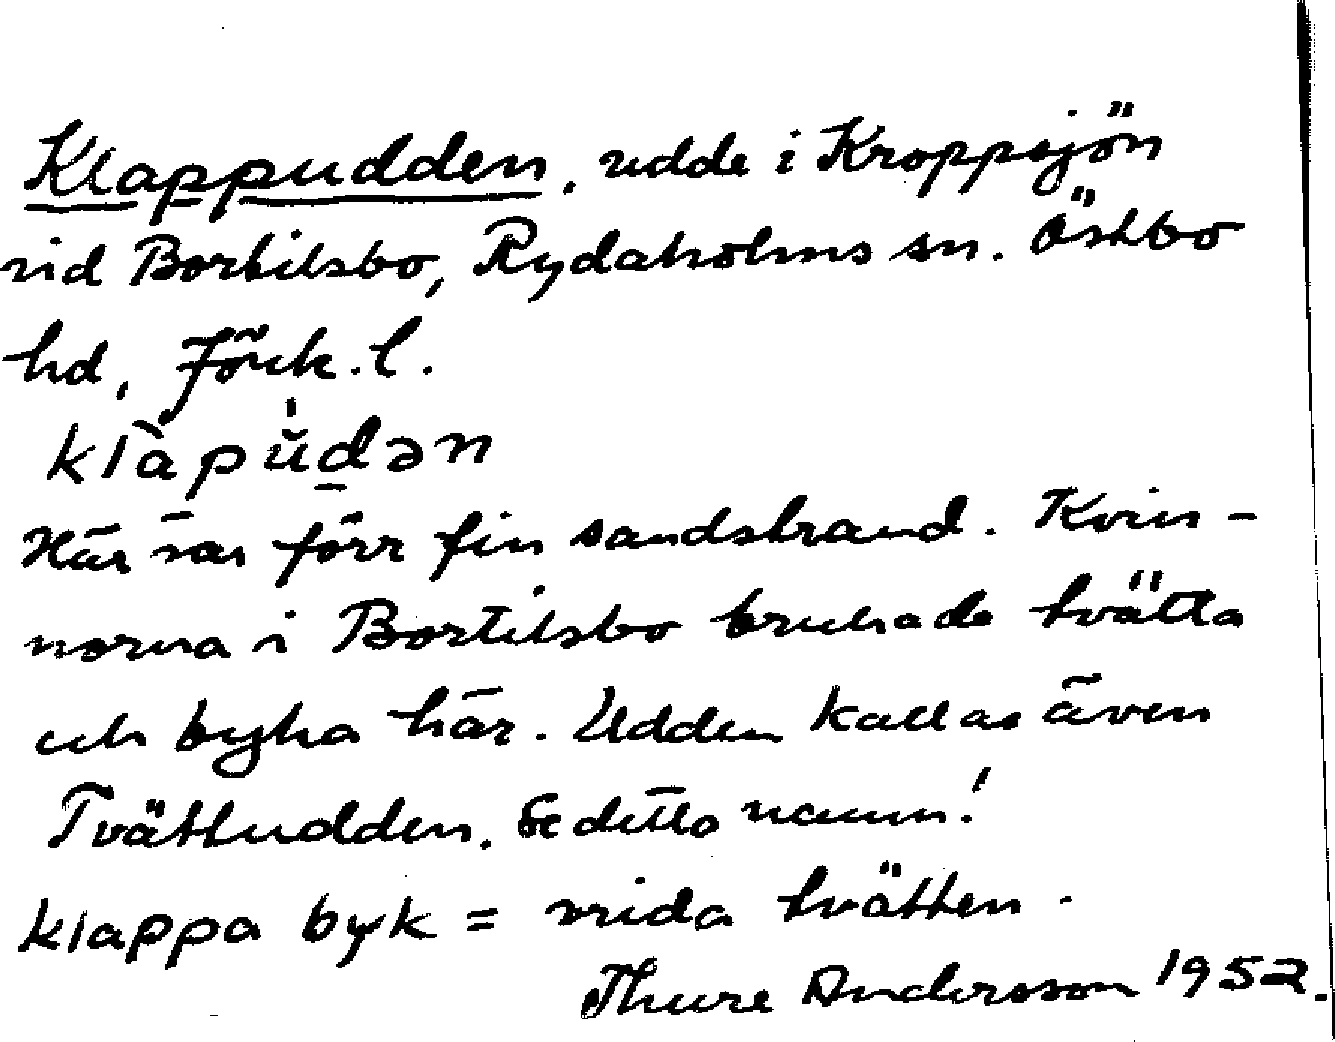 Klappudden, udde i Kroppsjön
vid Bortilsbo, Rydaholms sn. Östbo
hd, Jönk. l.
klàpŭ̍dən
Här var förr fin sandstrand. Kvin-
norna i Bortilsbo brukade tvätta
och byka här. Udden kallas även
Tvättudden. Se detta namn!
klappa byk = vrida tvätten.
Thure Andersson 1952.